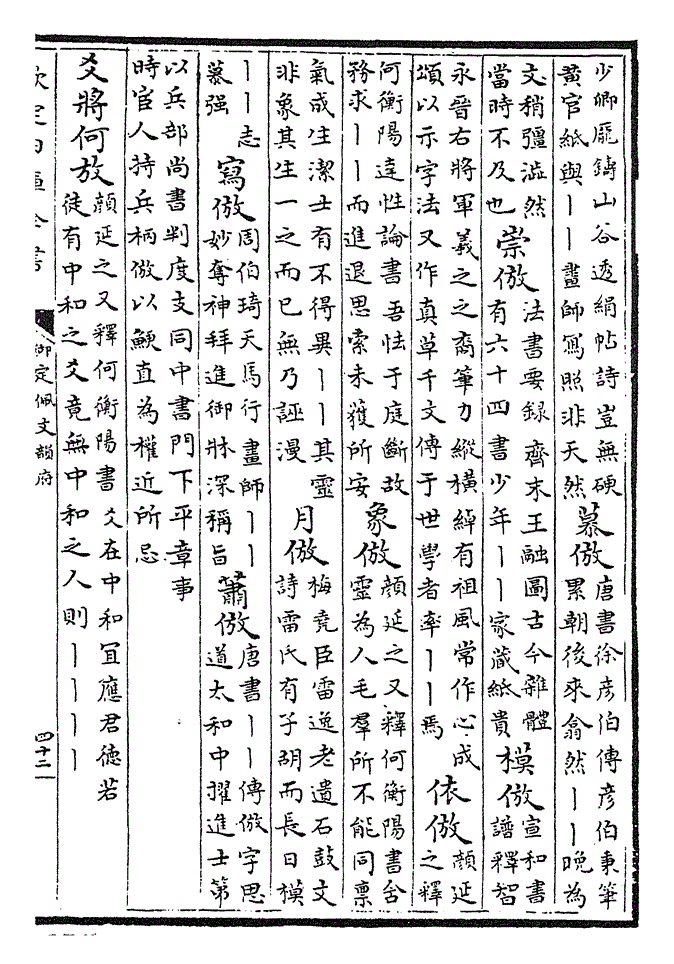 少卿厖鑄山谷透絹帖詩豈無硬
黄官紙與丨丨畫師寫照非天然
慕倣
唐書徐彦伯傳彦伯秉筆
累朝後來翕然丨丨晚為
文稍彊澁然
當時不及也
崇倣
法書要録齊末王融圖古今雜體
有六十四書少年丨丨家藏紙貴
模倣
宣和書
譜釋智
永晉右將軍羲之之裔筆力縱橫綽有祖風常作心成
頌以示字法又作真草千文傳于世學者率丨丨焉
依倣
顔延
之釋
何衡陽達性論書吾怯于庭斷故
務求丨丨而進退思索未獲所安
象倣
顔延之又釋何衡陽書含
靈為人毛羣所不能同禀
氣成生潔士有不得異丨丨其靈
非象其生一之而已無乃誣漫
月倣
梅堯臣雷逸老遺石鼓文
詩雷氏有子胡而長日模
丨丨志
慕强
寫倣
周伯琦天馬行畫師丨丨
妙奪神拜進御牀深稱旨
蕭倣
唐書丨丨傳倣字思
道太和中擢進士第
以兵部尚書判度支同中書門下平章事
時官人持兵柄倣以鯁直為權近所忌
爻將何放
顔延之又釋何衡陽書爻在中和宜應君徳若
徒有中和之爻竟無中和之人則丨丨丨丨
欽定四庫全書
御定佩文韻府
四十二